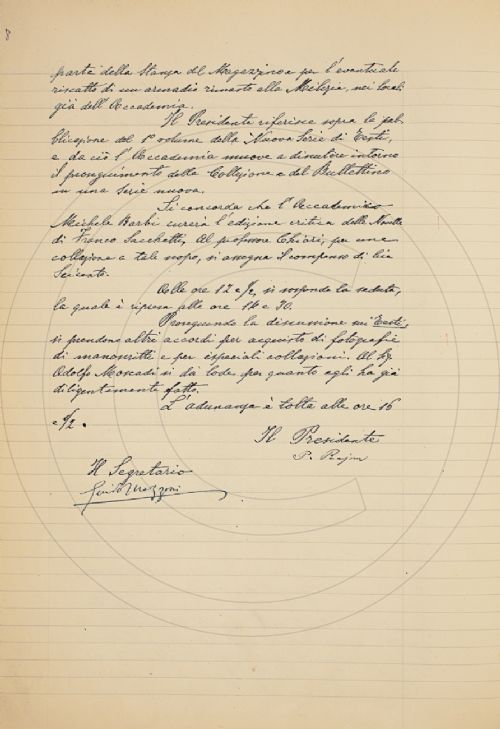 8
parte della Stanza del Magazzino e per l'eventuale
riscatto di un armadio rimasto alla Milizia, nei locali
già dell'Accademia.
Il Presidente riferisce sopra la pub-
blicazione del 1° volume della Nuova Serie di Testi,
e da ciò l'Accademia muove a discutere intorno
il proseguimento della Collezione e del Bullettino
in una serie nuova.
Si concorda che l'Accademico
Michele Barbi curerà l'edizione critica delle Novelle
di Franco Sacchetti. Al professore Chiari, per una
collazione a tale uopo, si assegna il compenso di lire
Seicento.
Alle ore 12 e ½, si sospende la seduta,
la quale è ripresa alle ore 14 e 30.
Proseguendo la discussione sui Testi,
si prendono altri accordi per acquisto di fotografie
di manoscritti e per speciali collazioni. Al
Adolfo si dà lode per quanto egli ha già
diligentemente fatto.
L'adunanza è tolta alle ore 16
e ½.
Il Presidente
P. Rajna
Il Segretario
Guido Mazzoni